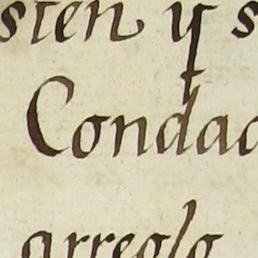 sten y s
Condad
arreglo